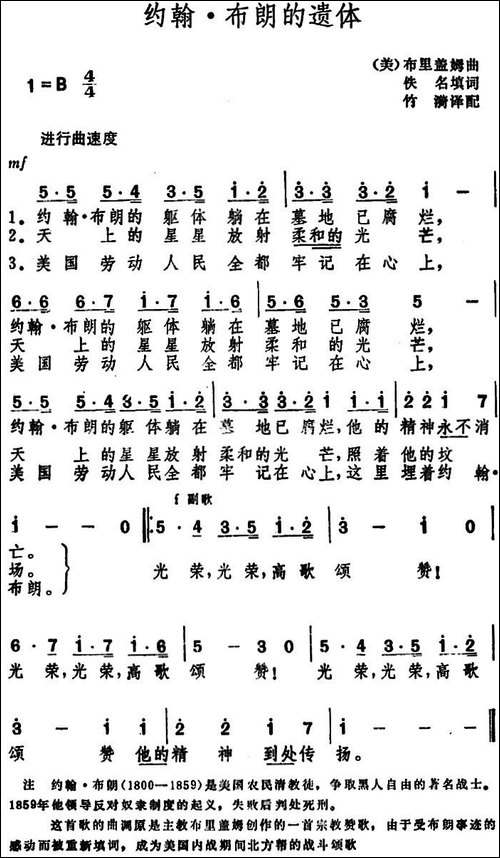 约翰·布朗的遗体
(美)布里盖姆曲
1=B 4/4
佚 名填词
竹 漪译配
进行曲速度
mf
5·5 5·4 3·5 i·2 | 3·3 3·2 i - |
1。约翰·布朗的 躯体 躺在 墓地 已腐 烂,
2。天 上的 星星 放射 柔和的 光 芒,
3。美国 劳动 人民 全都 牢记 在心 上,
6·6 6·7 i·7 i·6 | 5·6 5·3 5 -
约翰·布朗的 躯体 躺在 墓地 已腐 烂,
天 上的 星星 放射 柔和 的光 芒,
美国 劳动 人民 全都 牢记 在心 上,
5·5 5·4 3·5 i·2 | 3·3 3·2 i·i i·i | 2 2 i 7
约翰·布朗的躯体躺在 墓地已腐烂,他的 精神永不消
天 上的星星放射 柔和的光 芒,照着 他的坟
美国 劳动人民全都 牢记在心上,这里 埋着约翰·
f 副歌
i - - 0 ‖: 5·4 3·5 i·2 | 3 - i 0
亡。
场。 光荣,光荣,高歌 颂 赞!
布朗。
6·7 i·7 i·6 | 5 - 3 0 | 5·4 3·5 i·2
光荣,光荣,高歌 颂 赞! 光荣,光荣,高歌
3 - i i | 2 2 i 7 | i - -
颂 赞 他的 精 神 到处传 扬。
注 约翰·布朗(1800—1859)是美国农民清教徒,争取黑人自由的著名战士。
1859年他领导反对奴隶制度的起义,失败后判处死刑。
这首歌的曲调原是主教布里盖姆创作的一首宗教赞歌,由于受布朗事迹的
感动而被重新填词,成为美国内战期间北方帮的战斗颂歌